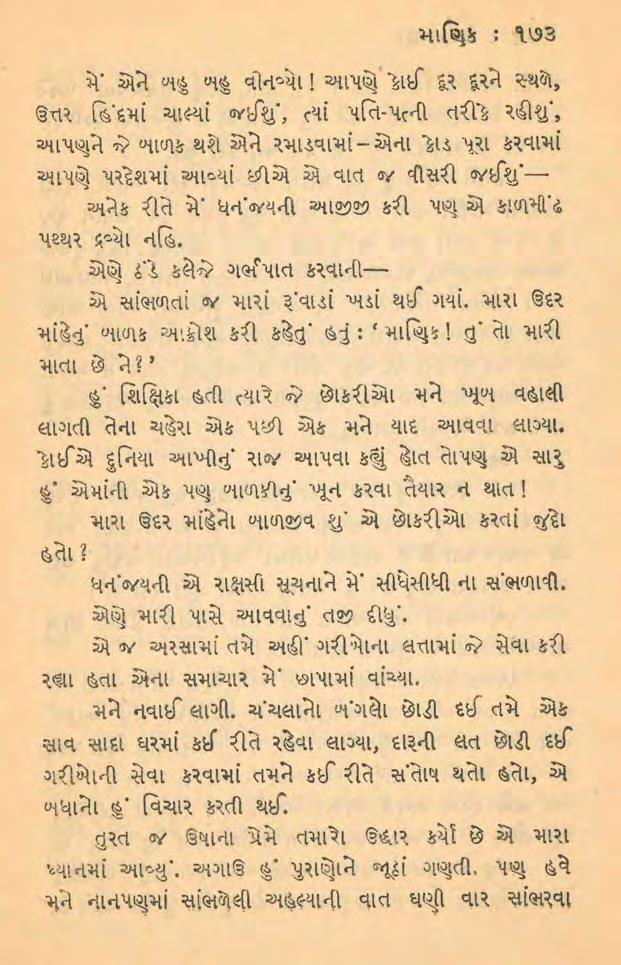 માણિક : ૧૭૩
મેં એને બહુ બહુ વીનવ્યો! આપણે કોઈ દૂર દૂરને સ્થળે,
ઉત્તર હિંદમાં ચાલ્યાં જઈશું, ત્યાં પતિ-પત્ની તરીકે રહીશું,
આપણને જે બાળક થશે એને રમાડવામાં–એના કોડ પૂરા કરવામાં
આપણે પરદેશમાં આવ્યાં છીએ એ વાત જ વીસરી જઈશું—
અનેક રીતે મેં ધનંજયની આજીજી કરી પણ એ કાળમીંઢ
પથ્થર દ્રવ્યો નહિ.
એણે ઠંડે કલેજે ગર્ભપાત કરવાની—
એ સાંભળતાં જ મારાં રૂંવાડાં ખડાં થઈ ગયાં. મારા ઉદર
માંહેનું બાળક આક્રોશ કરી કહેતું હતું : ‘માણિક! તું તો મારી
માતા છે ને?’
હું શિક્ષિકા હતી ત્યારે જે છોકરીઓ મને ખૂબ વહાલી
લાગતી તેના ચહેરા એક પછી એક મને યાદ આવવા લાગ્યા.
કોઈએ દુનિયા આખીનું રાજ આપવા કહ્યું હોત તોપણ એ સારુ
હું એમાંની એક પણ બાળકીનું ખૂન કરવા તૈયાર ન થાત!
મારા ઉદર માંહેનો બાળજીવ શું એ છોકરીઓ કરતાં જુદો
હતો?
ધનંજયની એ રાક્ષસી સૂચનાને મેં સીધેસીધી ના સંભળાવી.
એણે મારી પાસે આવવાનું તજી દીધું.
એ જ અરસામાં તમે અહીં ગરીબોના લત્તામાં જે સેવા કરી
રહ્યા હતા એના સમાચાર મેં છાપામાં વાંચ્યા.
મને નવાઈ લાગી. ચંચલાનો બંગલો છોડી દઈ તમે એક
સાવ સાદા ઘરમાં કઈ રીતે રહેવા લાગ્યા, દારૂની લત છોડી દઈ
ગરીબોની સેવા કરવામાં તમને કઈ રીતે સંતોષ થતો હતો, એ
બધાનો હું વિચાર કરતી થઈ.
તુરત જ ઉષાના પ્રેમે તમારો ઉદ્ધાર કર્યો છે એ મારા
ધ્યાનમાં આવ્યું. અગાઉ હું પુરાણોને જૂઠાં ગણતી. પણ હવે
મને નાનપણમાં સાંભળેલી અહલ્યાની વાત ઘણી વાર સાંભરવા